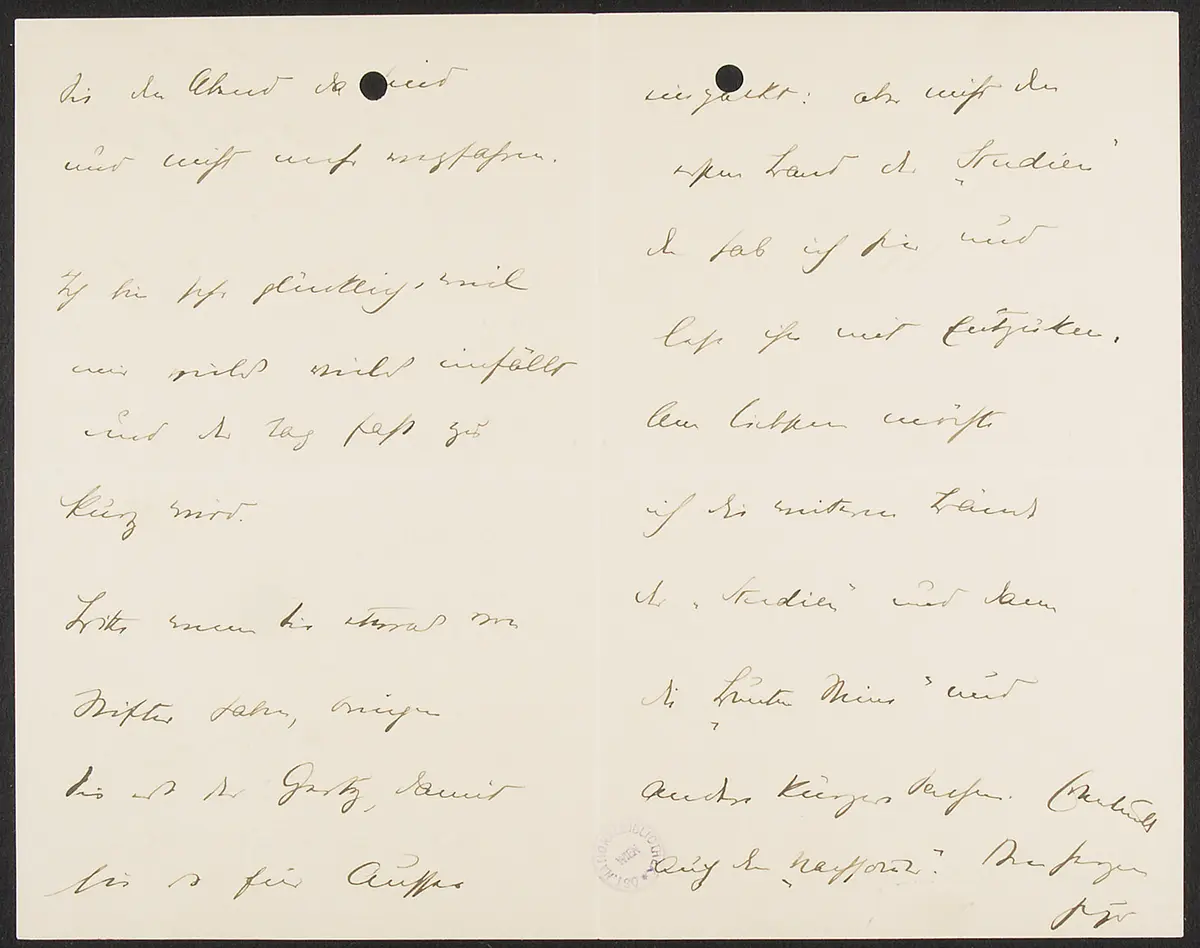 Sie den Abend da sind
und nicht mehr wegfahren.
Ich bin sehr glücklich, weil
mir viel viel einfällt
und der Tag fast zu
kurz wird.
Bitte wenn Sie etwas von
Stifter haben, bringen
Sie es der Gerty, damit
sie es für Aussee
einpackt: aber nicht den
ersten Band der „Studien"
den hab ich hier und
lese ihn mit Entzücken.
Am liebsten möchte
ich die weiteren Bände
der „Studien" und dann
die „Bunten Steine" und
andere kürzere Sachen. (Eventuell
auch den „Nachsommer". Von Herzen
Hugo
ÖST. NATIONALBIBLIOTHEK WIEN